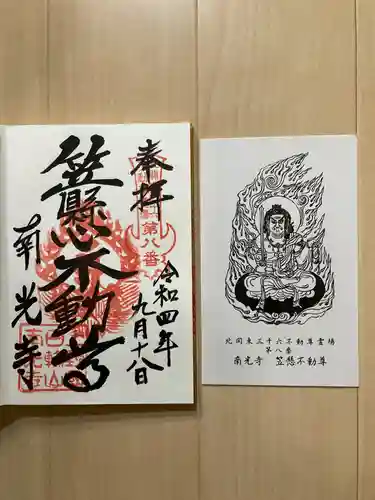 奉拝
第八番
令和四年
九月十八日
笠懸不動尊
南光寺
北関東三十六不動尊霊場
第八番
南光寺 笠懸不動尊